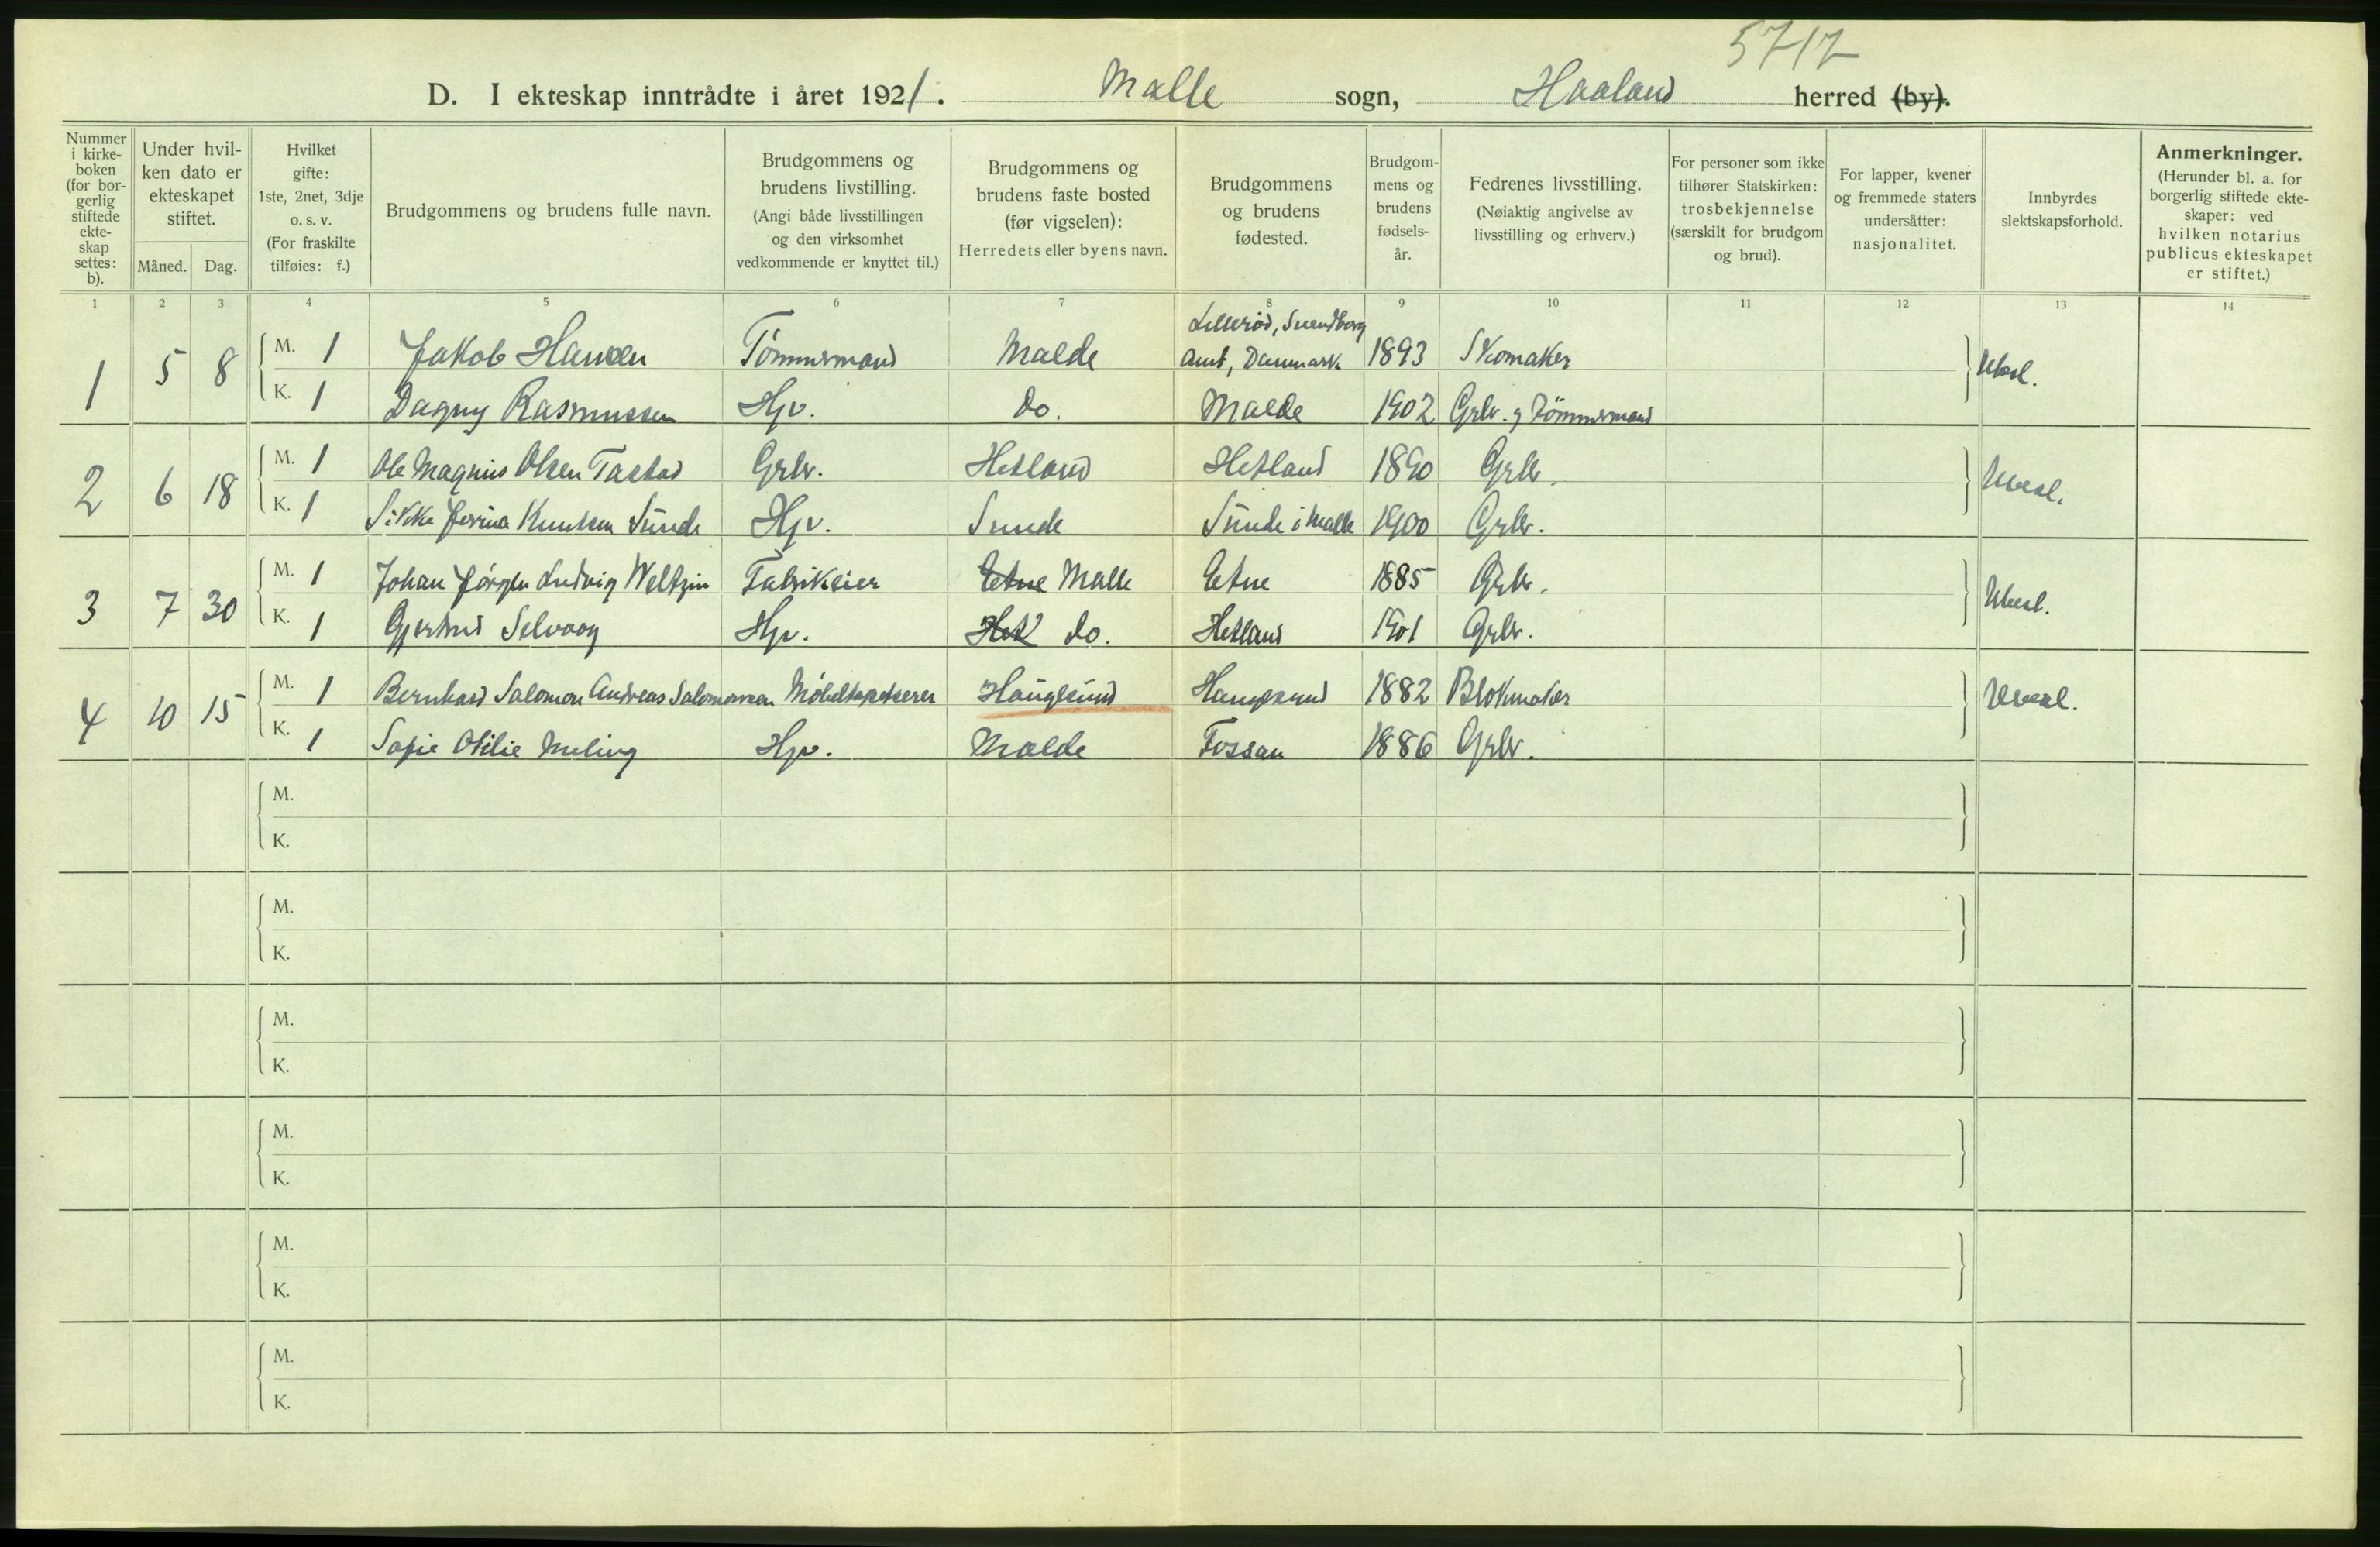 5717
D. I ekteskap inntrådte i året 1921. Malle sogn, Haaland herred (by).
Nummer i kirkeboken (for borgerlig stiftede ekteskap settes: b).
Under hvilken dato er ekteskapet stiftet.
Måned. Dag.
Hvilket gifte: 1ste, 2net, 3dje o. s. v. (For fraskilte tilføies: f.)
Brudgommens og brudens fulle navn.
Brudgommens og brudens livstilling. (Angi både livsstillingen og den virksomhet vedkommende er knyttet til.)
Brudgommens og brudens faste bosted (før vigselen): Herredets eller byens navn.
Brudgommens og brudens fødested.
Brudgommens og brudens fødselsår.
Fedrenes livsstilling. (Nøiaktig angivelse av livsstilling og erhverv.)
For personer som ikke tilhører Statskirken: trosbekjennelse (særskilt for brudgom og brud).
For lapper, kvener og fremmede staters undersåtter: nasjonalitet.
Innbyrdes slektskapsforhold.
Anmerkninger. (Herunder bl. a. for borgerlig stiftede ekteskaper: ved hvilken notarius publicus ekteskapet er stiftet.)
1 2 3 4 5 6 7 8 9 10 11 12 13 14
1 5 8 M. 1 Jakob Hansen Tömmermand Malde Lillerød, Svendborg Amt, Danmark 1893 Skomaker Ubesl.
K. 1 Dagny Rasmussen Hjv. do. Malde 1902 Grbr. og Tömmermand
2 6 18 M. 1 Ole Magnus Olsen Tastad Grbr. Hetland Hetland 1890 Grbr. Ubesl.
K. 1 Sikke Serina Knutsen Sunde Hjv. Sunde Sunde i Malle 1900 Grbr.
3 7 30 M. 1 Johan Jörgen Ludvig Weltzin Fabrikeier Etne Malle Etne 1885 Grbr. Ubesl.
K. 1 Gjertrud Selvaag Hjv. Het do. Hetland 1901 Grbr.
4 10 15 M. 1 Bernhard Salomon Andreas Salomonsen Möbeltapetserer Haugesund Haugesund 1882 Blokmaker Ubesl.
K. 1 Sofie Otilie Meling Hjv. Malde Fossan 1886 Grbr.
M.
K.
M.
K.
M.
K.
M.
K.
M.
K.
M.
K.